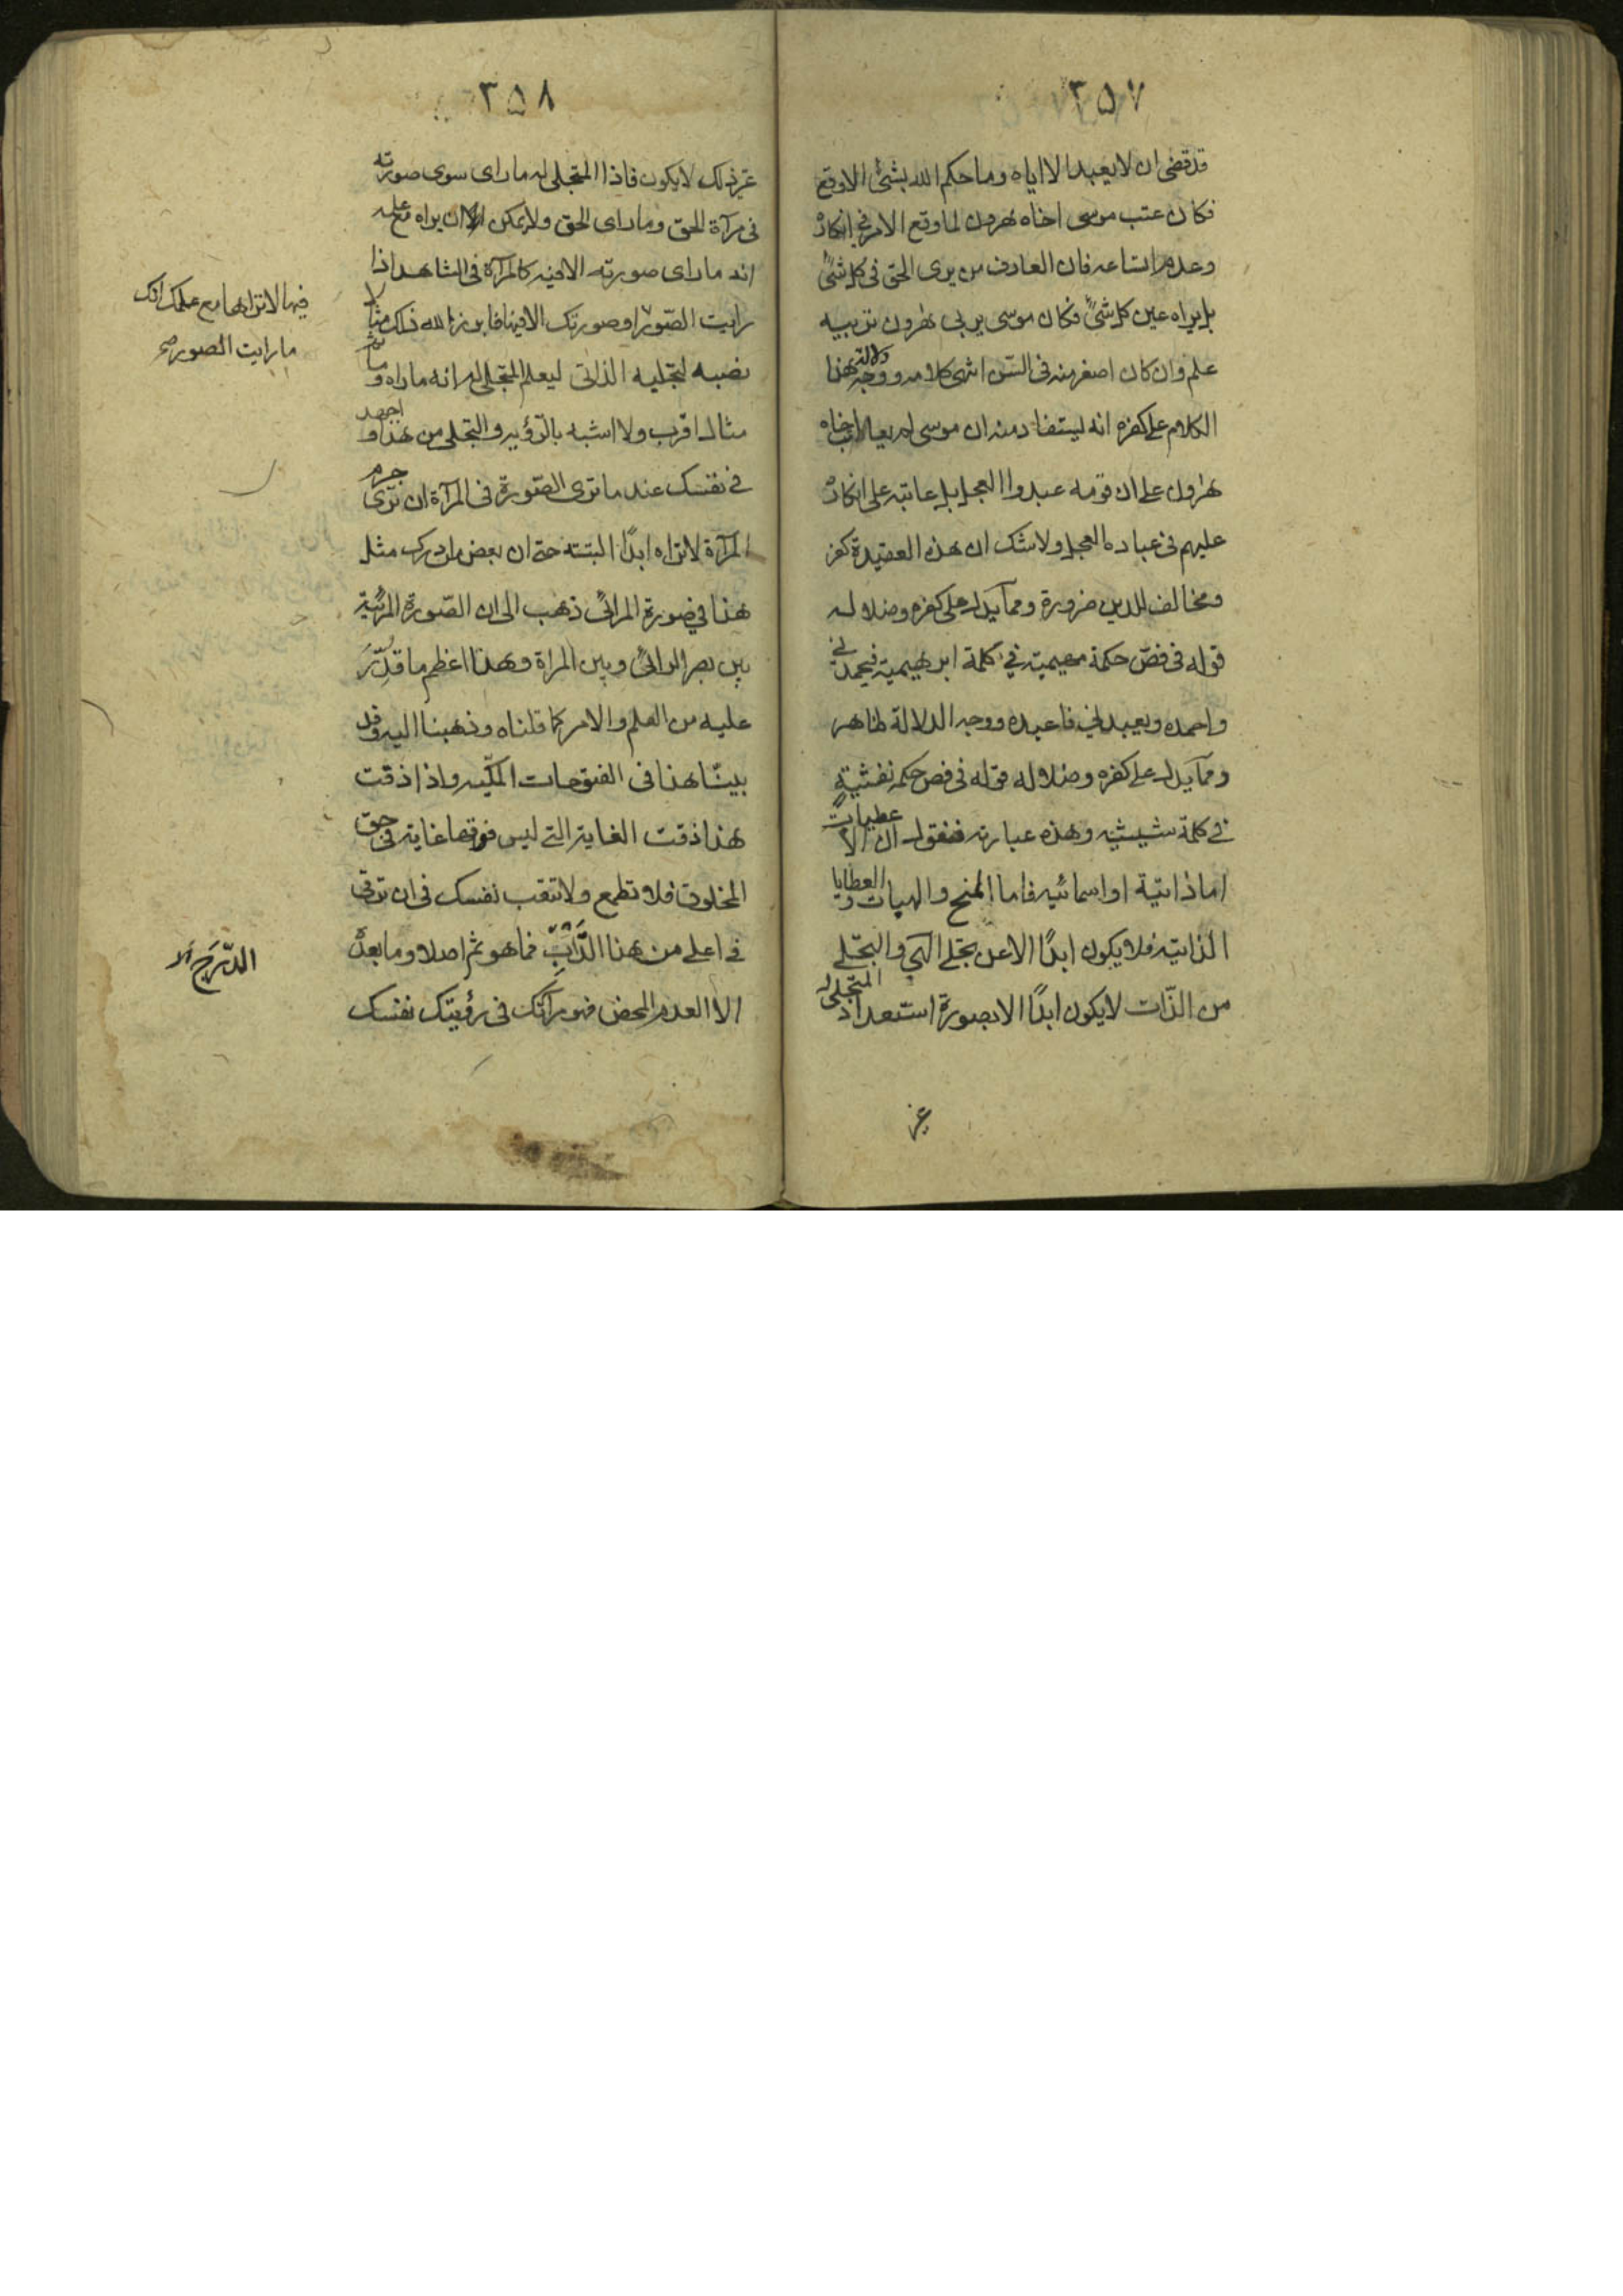 ٣٥٧
قد قضى ان لا يعبد الا اياه وما حكم الله بشئ الا وقع
فكان عتب موسى اخاه هرون لما وقع الامر فى انكاره
وعدم اتساعه فان العارف من يرى الحق فى كل شئ
بل يراه عين كل شئ فكان موسى يربى هرون تربيه
علم وان كان اصغر منه فى السن انتهى كلامه ووجه دلالة هذا
الكلام على كفره انه يستفاد منه ان موسى لم يعاتب اخاه
هرون على ان قومه عبدوا العجل بل عاتبه على انكاره
عليهم فى عبادة العجل ولا شك ان هذه العقيدة كفر
ومخالف للدين ضرورة ومما يدل على كفره وضلاله
قوله فى فص حكمة مهيمية فى كلمة ابرهيمية فيحمدنى
واحمده ويعبدنى فاعبده ووجه الدلالة ظاهر
ومما يدل على كفره وضلاله قوله فى فص حكمة نفثية
فى كلمة شيثيه وهذه عبارته فنقول ان الاعطيات
اما ذاتية او اسمائيه فاما المنح والهبات والعطايا
الذاتيه فلا يكون ابدًا الا عن تجلى الهى والتجلى
من الذات لا يكون ابدًا الا بصورة استعداد المتجلى له
غير
٣٥٨
غير ذلك لا يكون فاذا المتجلى له ما راى سوى صورته
فى مرآة الحق وما راى الحق ولا يمكن ان يراه مع علمه
انه ما راى صورته الا فيه كالمرآة فى الشاهد اذا
رايت الصور او صورتك الا فيها فابرز الله ذلك مثالا
نصبه لتجليه الذاتى ليعلم المتجلى له انه ما راه وما ثم
مثال اقرب ولا اشبه بالرؤيه والتجلى من هذا واجهد
فى نفسك عند ما ترى الصورة فى المرآة ان ترى جرم
المرآة لا تراه ابدًا البتته حتى ان بعض من ادرك مثل
هذا فى صورة المرائى ذهب الى ان الصورة المرئية
بين بصر الرائى وبين المراة وهذا اعظم ما قدر
عليه من العلم والامر كما قلناه وذهبنا اليه وقد
بينا هذا فى الفتوحات المكيه واذا ذقت
هذا ذقت الغاية التى ليس فوقها غاية فى حق
المخلوق فلا تطمع ولا تتعب نفسك فى ان ترقى
فى اعلى من هذا فما هو ثم اصلا وما بعده
الا العدم المحض فهو مرآتك فى رؤيتك نفسك
فيها لا تراها مع علمك انك
ما رايت الصور صح
الدرج